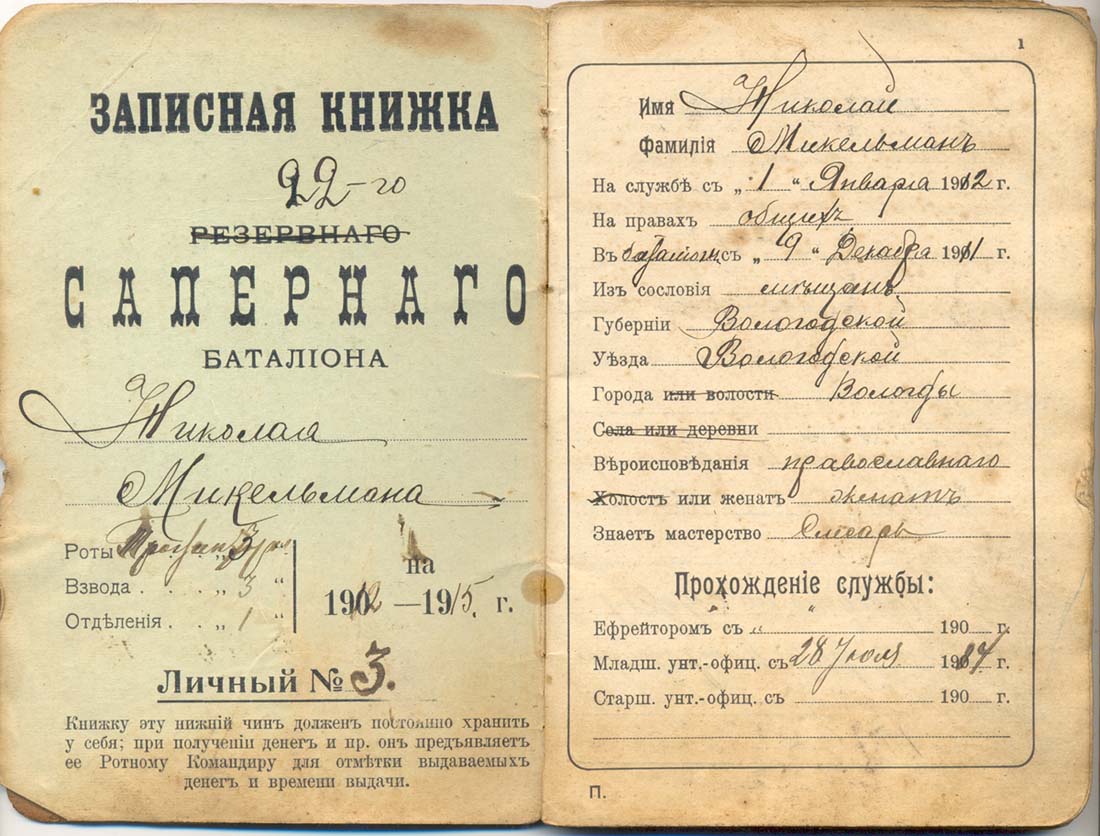 ЗАПИСНАЯ КНИЖКА
22-го
РЕЗЕРВНАГО
САПЕРНАГО
БАТАЛІОНА
Николая
Микельмана
Роты „ 3 „
Взвода . . . „ 3 „
Отдѣленія . . „ 1 „
на
1912 —1915 г.
Личный № 3.
Книжку эту нижній чинъ долженъ постоянно хранить
у себя; при полученіи денегъ и пр. онъ предъявляетъ
ее Ротному Командиру для отмѣтки выдаваемыхъ
денегъ и времени выдачи.
1
Имя Николай
Фамилія Микельманъ
На службѣ съ „ 1 “ Января 1912 г.
На правахъ общихъ
Въ баталіонѣ съ „ 9 “ Декабря 1911 г.
Изъ сословія мѣщанъ
Губерніи Вологодской
Уѣзда Вологодской
Города или волости Вологды
Села или деревни
Вѣроисповѣданія православнаго
Холостъ или женатъ женатъ
Знаетъ мастерство Слесарь
Прохожденіе службы:
Ефрейторомъ съ „ “ 190 г.
Младш. унт.-офиц. съ 28 Іюля 1914 г.
Старш. унт.-офиц. съ 190 г.
П.